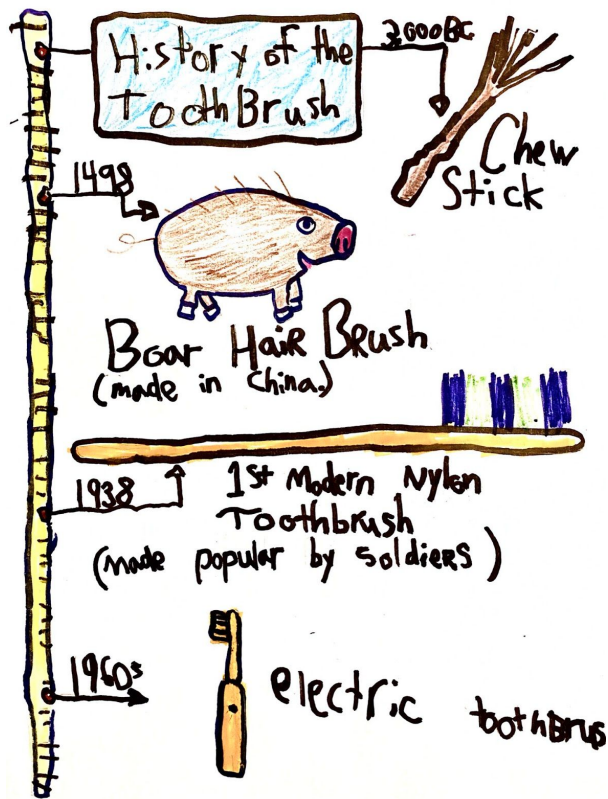 History of the
ToothBrush
3000BC
Chew
Stick
1498
Boar Hair Brush
(made in China.)
1938
1st Modern Nylon
Toothbrush
(made popular by soldiers)
1960s
electric toothBrus